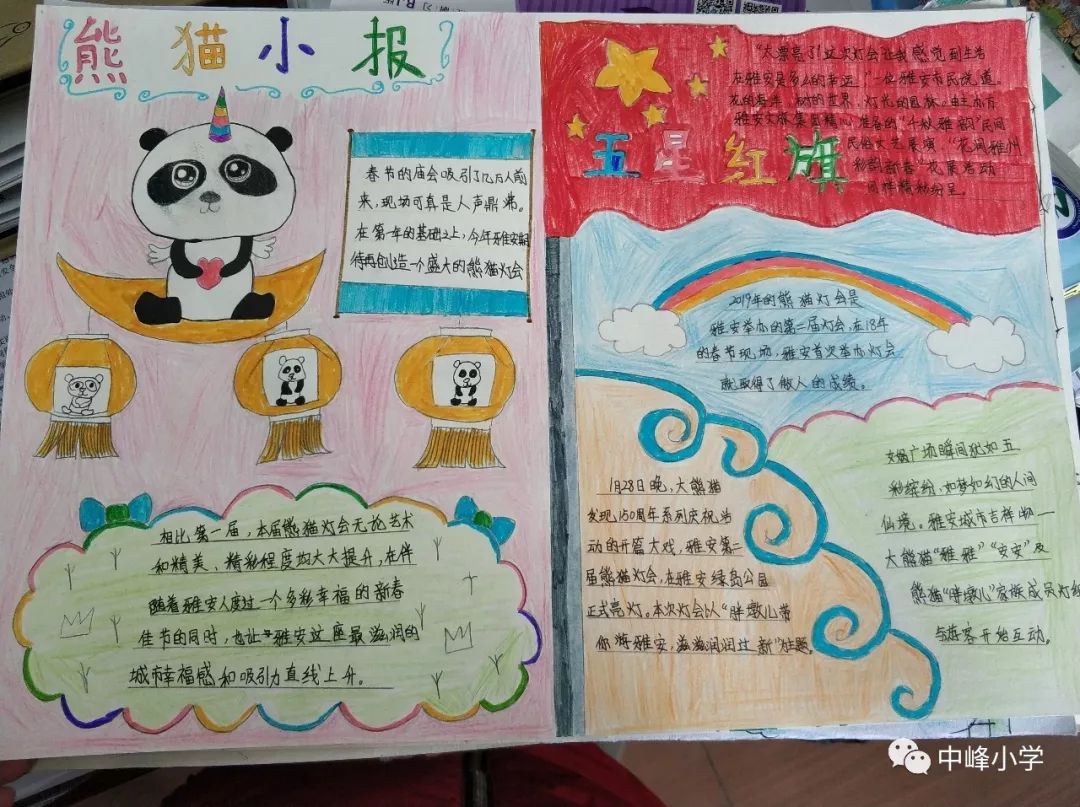 熊猫小报
春节的庙会吸引了几万人前
来,现场可真是人声鼎沸。
在第一年的基础之上,今年雅安期
待再创造一个盛大的熊猫灯会
相比第一届,本届熊猫灯会无论艺术
和精美、精彩程度均大大提升,在伴
随着雅安人度过一个多彩幸福的新春
佳节的同时,也让雅安这座最滋润的
城市幸福感和吸引力直线上升。
五星红旗
“太漂亮了!这次灯会让我感觉到生活
在雅安是多么的幸运。”一位雅安市民说道。
花的海洋、树的世界、灯光的园林。由主办方
雅安文旅集团精心准备的“千秋雅韵”民间
民俗文艺展演、“花间雅州
彩韵新春”花展活动
同样精彩纷呈。
2019年的熊猫灯会是
雅安举办的第二届灯会,在18年
的春节现场,雅安首次举办灯会
就取得了傲人的成绩。
1月28日晚,大熊猫
发现150周年系列庆祝活
动的开篇大戏,雅安第二
届熊猫灯会,在雅安绿岛公园
正式亮灯。本次灯会以“胖墩儿带
你游雅安,滋滋润润过新”主题
女娲广场瞬间犹如五
彩缤纷,如梦如幻的人间
仙境。雅安城市吉祥物一
大熊猫“雅雅”“安安”及
熊猫“胖墩儿”家族成员灯组
与游客开始互动。
中峰小学